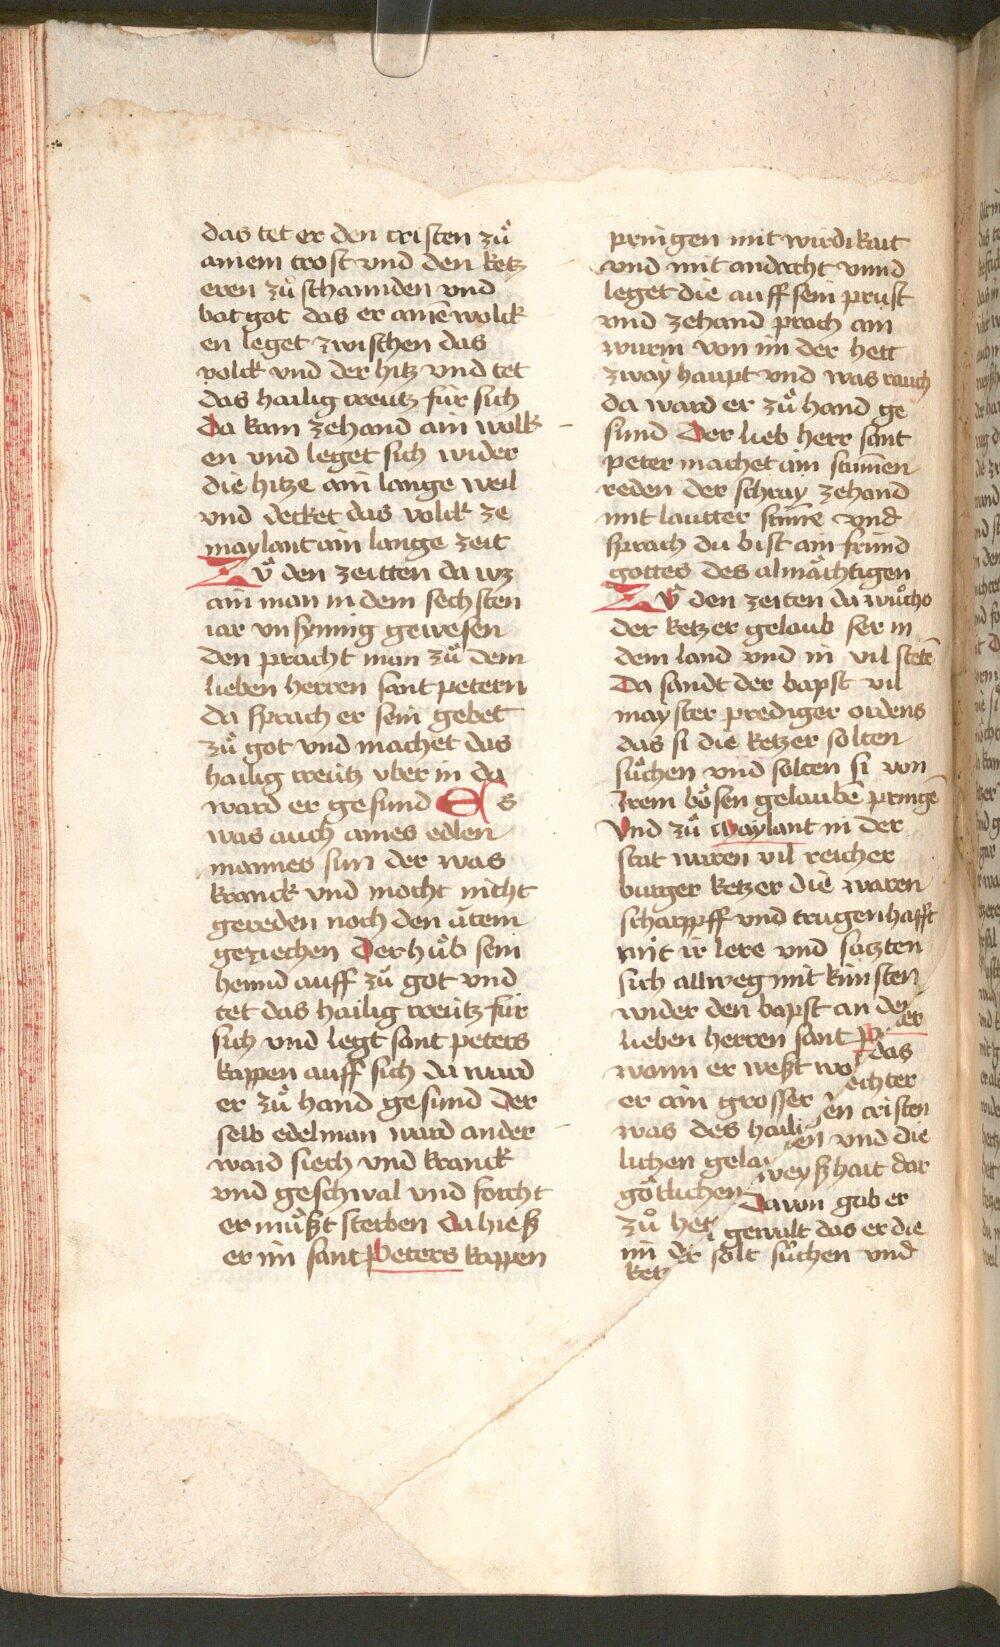 das tet er den cristen zuͦ
ainem trost vnd den ketz
eren zuͦ schannden vnd
bat got das er ainē wolck
en leget zwischen das
volck vnd der hitz vnd tet
das hailig creutz für sich
Da kam zehand ain wolk
en vnd leget sich wider
die hitze ain lange weil
vnd decket das volck ze
maylant ain lange zeit
Zuͦ den zeitten da wz
ain man in dem sechsten
iar vnsynnig gewesen
den pracht man zuͦ dem
lieben herren sant petern
da sprach er sein gebet
zuͦ got vnd machet das
hailig creütz vber in da
ward er gesund Es
was auch aines edlen
mannes sun der was
kranck vnd mocht nicht
gereden noch den atem
geziechen Der huͦb sein
hennd auff zuͦ got vnd
tet das hailig creütz für
sich vnd legt sant peters
kappen auff sich da ward
er zuͦ hand gesund Der
selb edelman ward ander
waid siech vnd kranck
vnd geschwal vnd forcht
er muͤßt sterben Da hieß
er im sant Peters kappen
pringen mit wirdikait
vnd mit andacht vnnd
leget die auff sein prust
vnd zehand prach ain
wurm von im der hett
zway haupt vnd was rauch
da ward er zuͦ hand ge
sund Der lieb herr sant
peter machet ain stumen
reden der schray zehand
mit lautter stime vnd
sprach du bist ain fründ
gottes des almaͤchtigen
Zuͦ den zeiten da wuͦchs
der ketzer gelaub ser in
dem land vnd in vil stetē
Da sandt der bapst vil
mayster prediger ordens
das si die ketzer solten
suͦchen vnd solten si von
Irem boͤsen gelaubē pringē
Vnd zuͦ Maylant in der
stat waren vil reicher
burger ketzer die waren
scharppff vnd trugenhafft
mit ir lere vnd satzten
sich allweg mit künsten
wider den bapst an den
lieben herren sant P er
wann er weßt wol das
er ain grosser echter
was des haili en cristen
lichen gela en vnd die
goͤtlichen weyßhait dar
zuͦ het Davon gab er
im gewalt das er die
ketz er solt suͦchen vnd